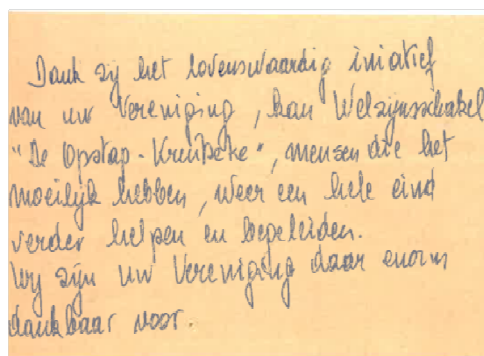 Dank zij het lovenswaardig iniatief
van uw Vereniging, kan Welzijnsschakel
"De Opstap - Kruibeke", mensen die het
moeilijk hebben, weer een hele eind
verder helpen en begeleiden.
Wij zijn uw Vereniging daar enorm
dankbaar voor.